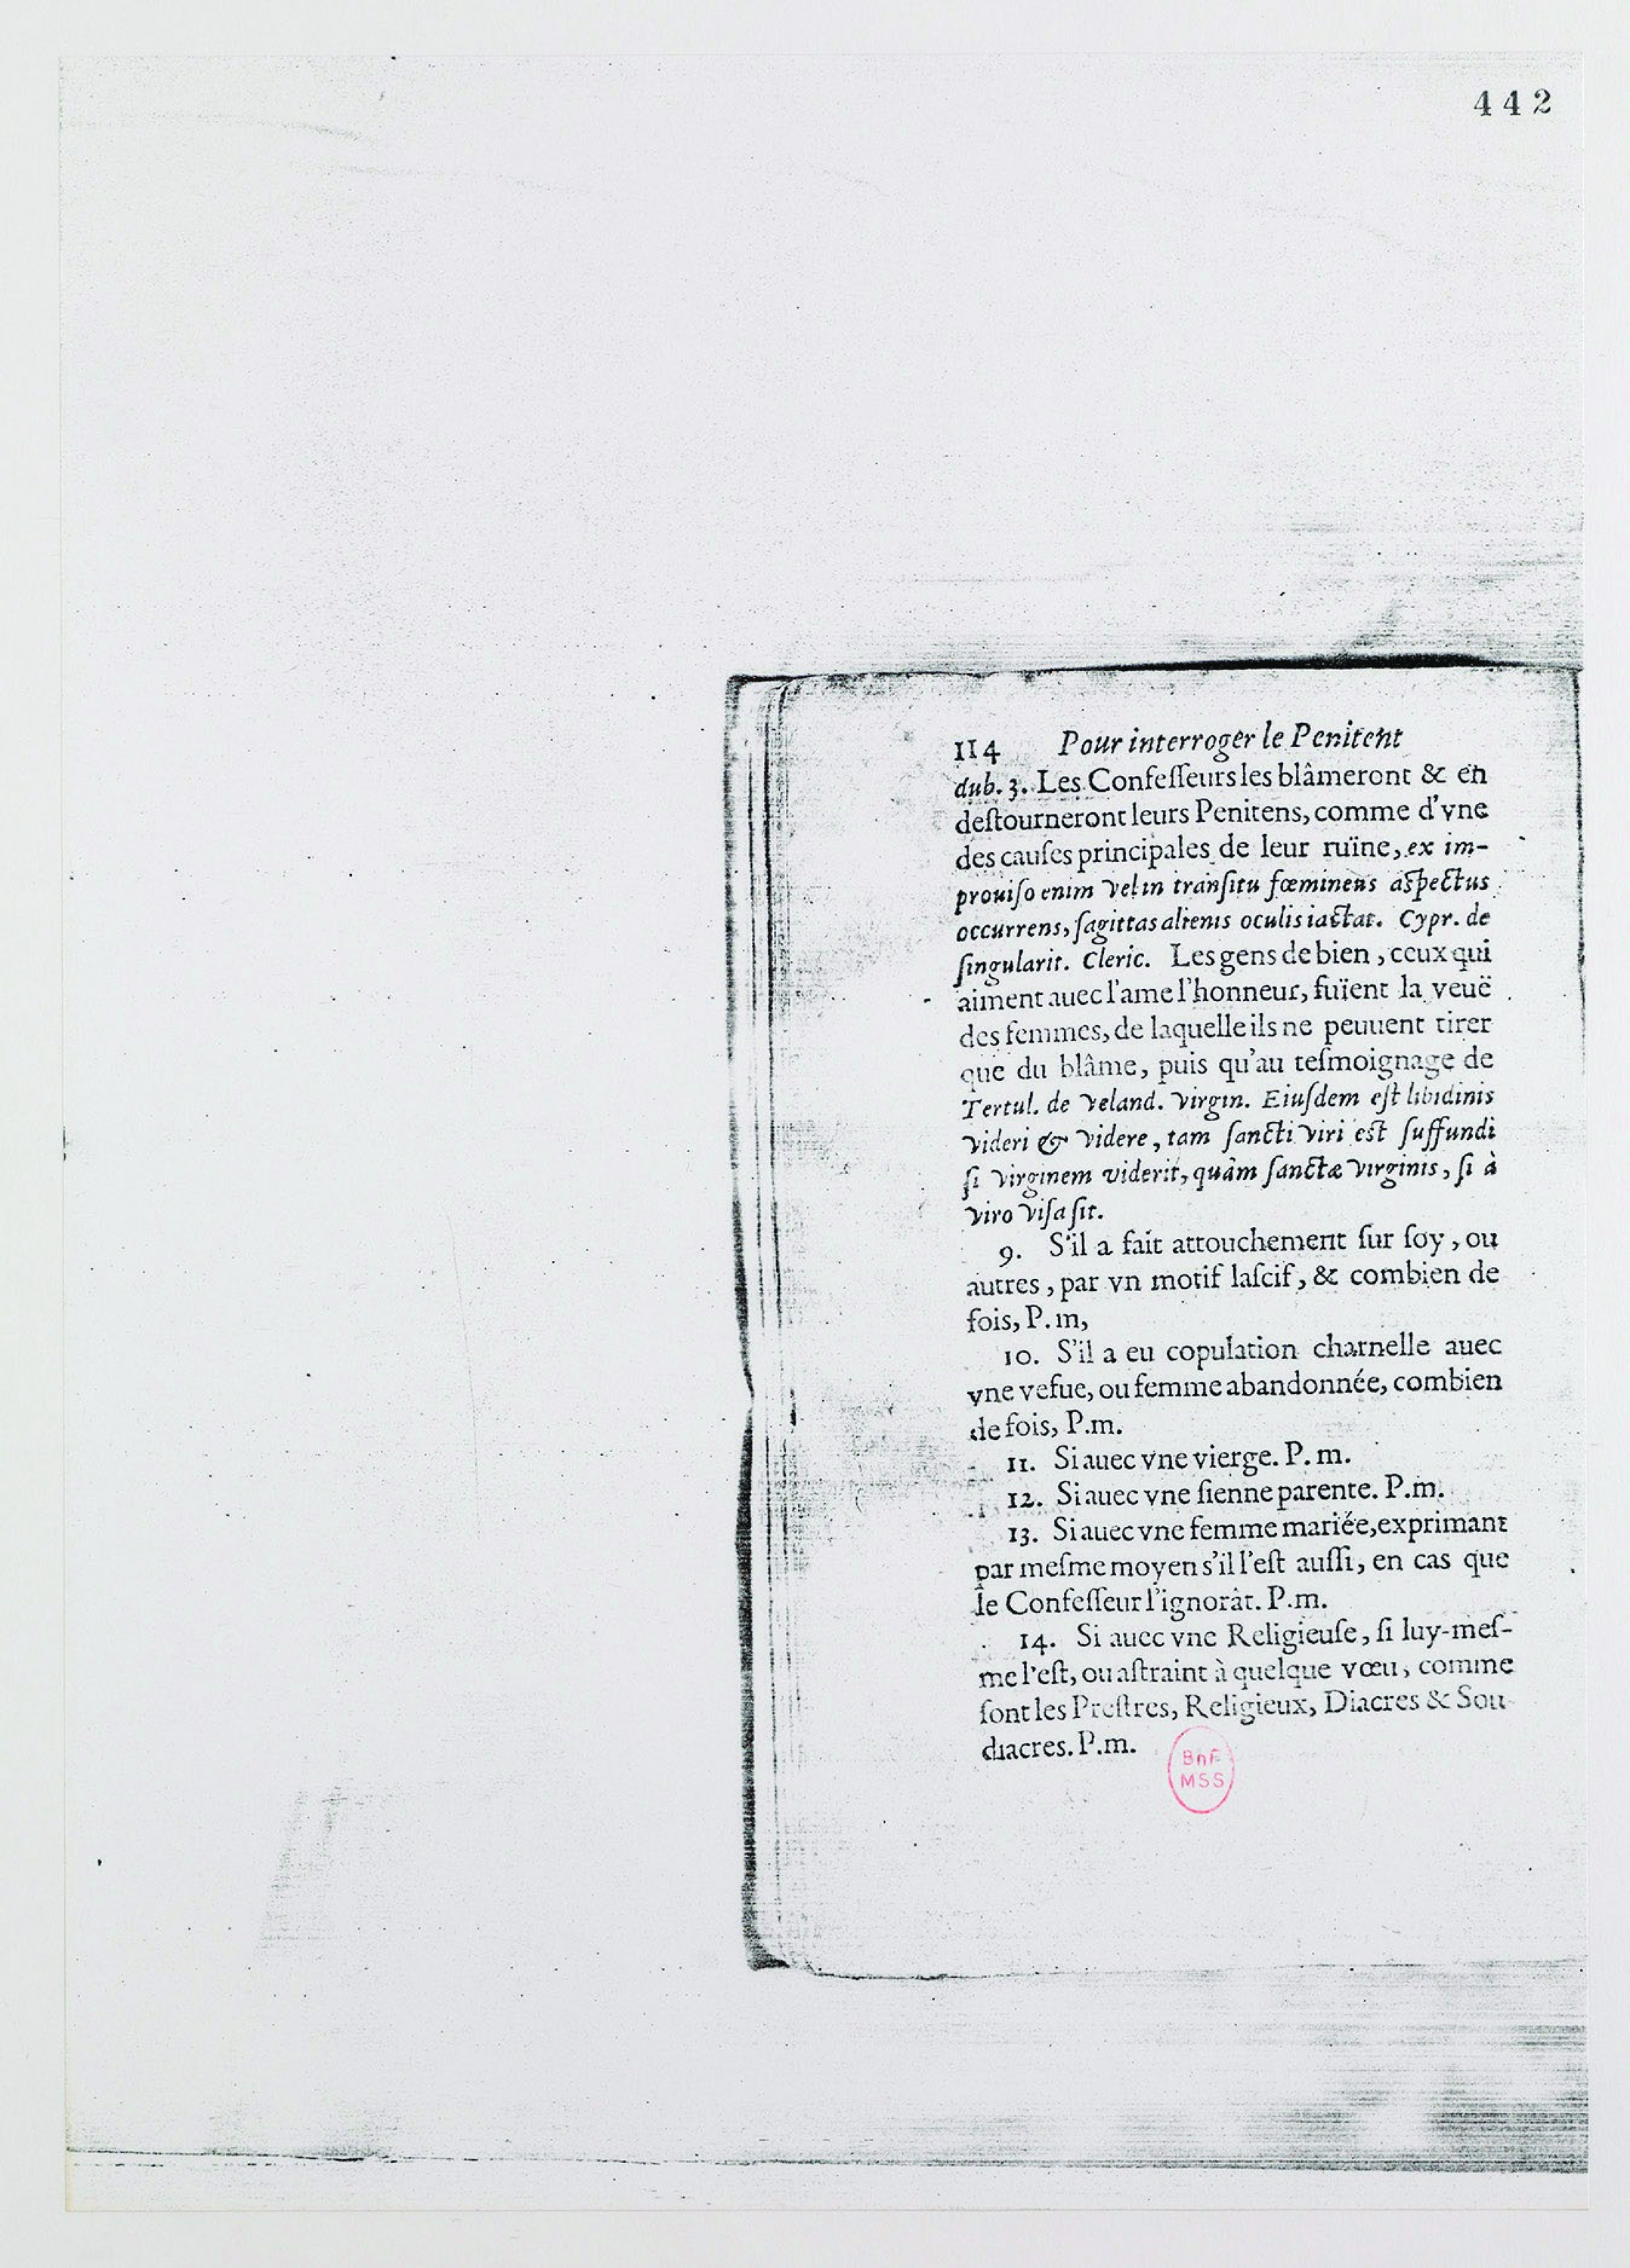 442
114 Pour interroger le Penitent
dub. 3. Les Confesſeurs les blâmeront & en
deſtourneront leurs Penitens, comme d'vne
des cauſes principales de leur ruïne, ex im-
prouiſo enim vel in tranſitu fœmineus aſpectus
occurrens, ſagittas alienis oculis iactat. Cypr. de
ſingularit. Cleric. Les gens de bien, ceux qui
aiment auec l'ame l'honneur, fuïent la veuë
des femmes, de laquelle ils ne peuuent tirer
que du blâme, puis qu'au teſmoignage de
Tertul. de veland. virgin. Eiuſdem eſt libidinis
videri & videre, tam ſancti viri eſt ſuffundi
ſi virginem viderit, quàm ſanctæ virginis, ſi à
viro viſa ſit.
9. S'il a fait attouchement ſur ſoy, ou
autres, par vn motif laſcif, & combien de
fois, P. m,
10. S'il a eu copulation charnelle auec
vne vefue, ou femme abandonnée, combien
de fois, P.m.
11. Si auec vne vierge. P. m.
12. Si auec vne ſienne parente. P.m.
13. Si auec vne femme mariée, exprimant
par meſme moyen s'il l'eſt auſſi, en cas que
le Confeſſeur l'ignorât. P.m.
14. Si auec vne Religieuſe, ſi luy-meſ-
me l'eſt, ou aſtraint à quelque vœu, comme
ſont les Preſtres, Religieux, Diacres & Sou-
diacres. P.m.
BnF
MSS